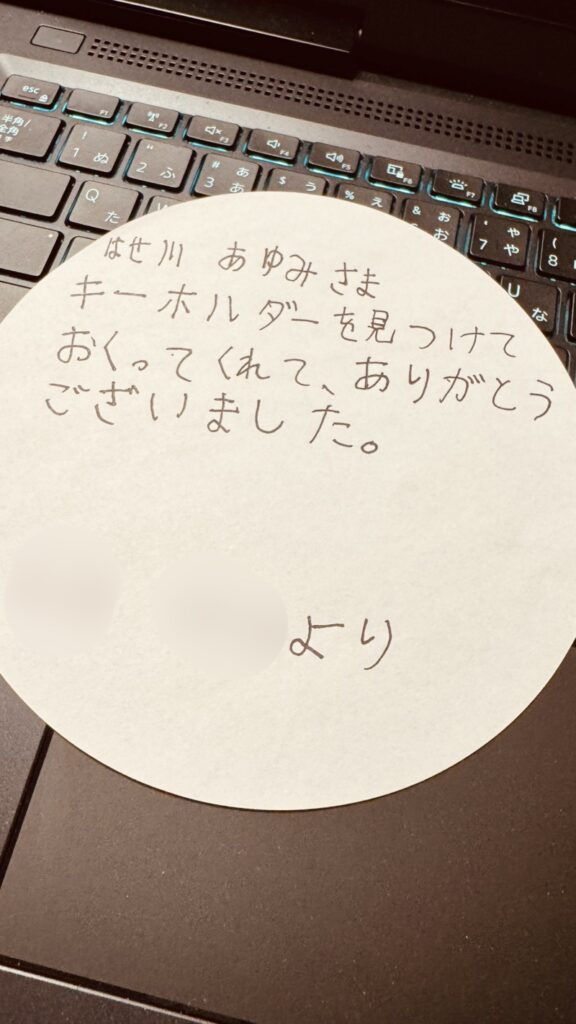 esc
F1
F3
F4
F5
F6
F7
F8
半角/
全角
! 1 ぬ
" 2 ふ
# 3 あ ぁ
$ う ぅ
% え ぇ
& お ぉ
' 7 や ゃ
( 8
Q た
W
U な
はせ川 あゆみさま
キーホルダーを見つけて
おくってくれて、ありがとう
ございました。
より